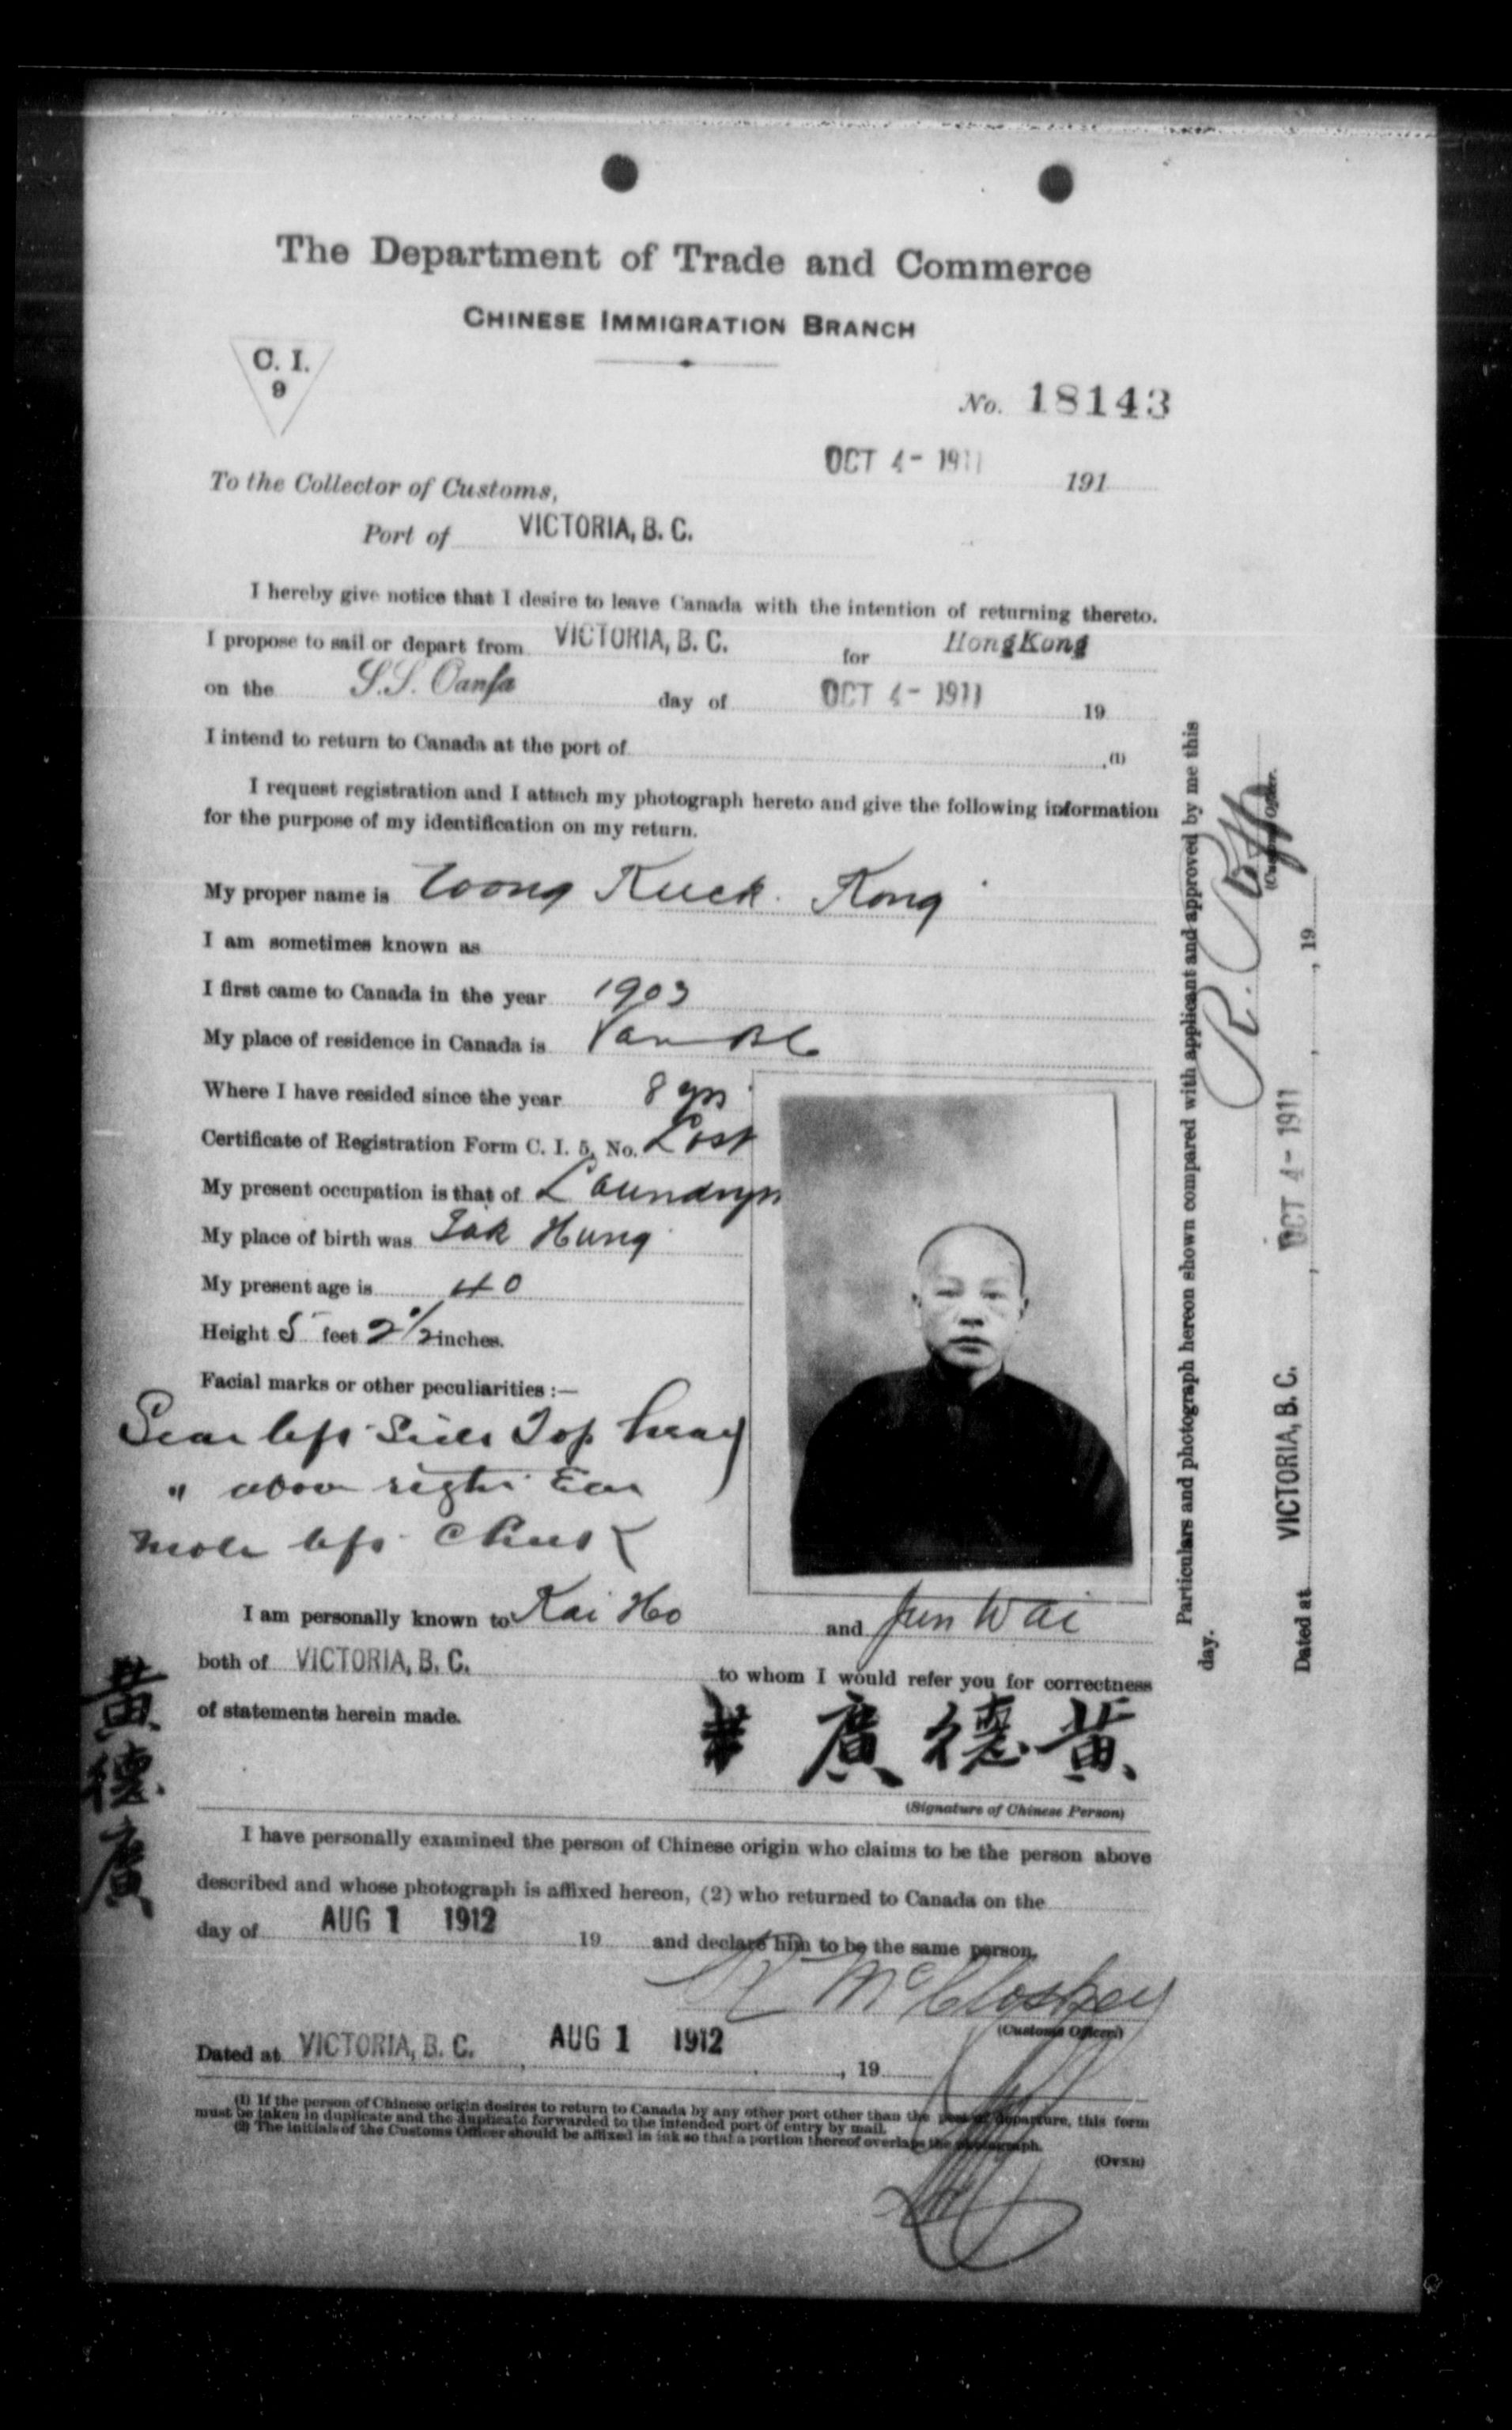 The Department of Trade and Commerce
CHINESE IMMIGRATION BRANCH
C. I.
9
No. 18143
OCT 4- 1911 191
To the Collector of Customs,
Port of VICTORIA, B. C.
I hereby give notice that I desire to leave Canada with the intention of returning thereto.
I propose to sail or depart from VICTORIA, B. C. for HongKong
on the S.S. Oanfa day of OCT 4- 1911 19
I intend to return to Canada at the port of ,(1)
I request registration and I attach my photograph hereto and give the following information
for the purpose of my identification on my return.
My proper name is Wong Kuck Kong
I am sometimes known as
I first came to Canada in the year 1903
My place of residence in Canada is Van BC
Where I have resided since the year 8 yrs
Certificate of Registration Form C. I. 5, No. Lost
My present occupation is that of Laundryn
My place of birth was Hung
My present age is 40
Height 5 feet 2 1/2 inches.
Facial marks or other peculiarities :—
Scar left side Top head
" above right Ear
mole left cheek
I am personally known to Kai Ho and Jun Wai
both of VICTORIA, B. C. to whom I would refer you for correctness
of statements herein made.
廣德黃
(Signature of Chinese Person)
黃德廣
I have personally examined the person of Chinese origin who claims to be the person above
described and whose photograph is affixed hereon, (2) who returned to Canada on the
day of AUG 1 1912 19 and declare him to be the same person.
McCloskey
(Customs Officer)
Dated at VICTORIA, B. C. , AUG 1 1912 , 19
(1) If the person of Chinese origin desires to return to Canada by any other port other than the port of departure, this form
must be taken in duplicate and the duplicate forwarded to the intended port of entry by mail.
(2) The initials of the Customs Officer should be affixed in ink so that a portion thereof overlaps the photograph.
(OVER)
Particulars and photograph hereon shown compared with applicant and approved by me this
day.
(Customs Officer.
Dated at VICTORIA, B. C. , OCT 4- 1911 , 19